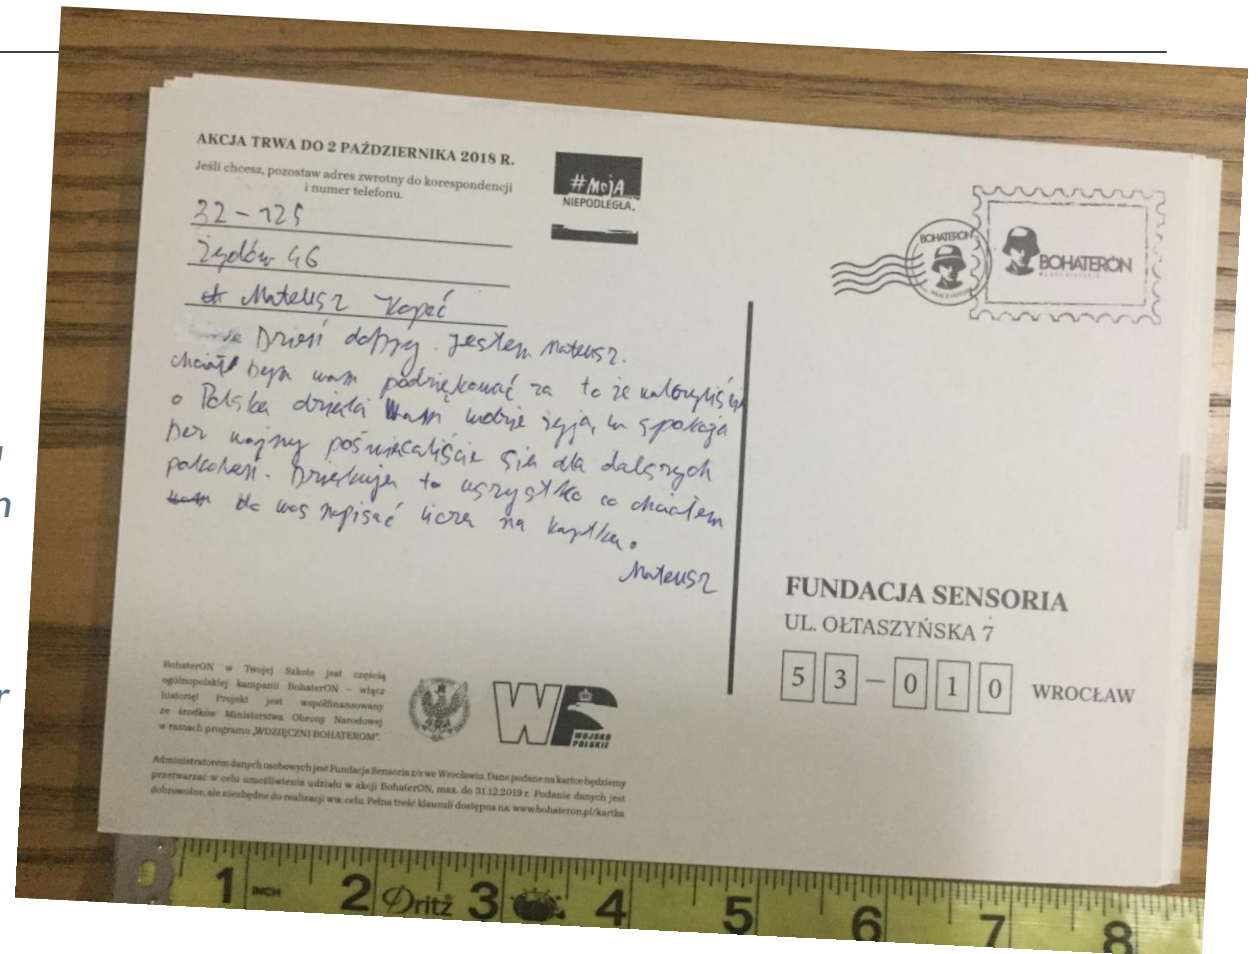 AKCJA TRWA DO 2 PAŹDZIERNIKA 2018 R.
Jeśli chcesz, pozostaw adres zwrotny do korespondencji
i numer telefonu.
32-125
Żędów 46
Mateusz Kopeć
Dzień dobry. Jestem Mateusz.
chciał bym wam podziękować za to że walczyliście
o Polskę dzięki Wam ludzie żyją w spokoju
bez wojny poświęcaliście się dla dalszych
pokoleń. Dziękuję to wszystko co chciałem
do was napisać liczę na kartkę.
Mateusz
#MOJA
NIEPODLEGŁA.
BOHATERON
BOHATERON
FUNDACJA SENSORIA
UL. OŁTASZYŃSKA 7
53-010 WROCŁAW
BohaterON w Twojej Szkole jest częścią
ogólnopolskiej kampanii BohaterON – włącz
historię! Projekt jest współfinansowany
ze środków Ministerstwa Obrony Narodowej
w ramach programu „WDZIĘCZNI BOHATEROM".
WOJSKO
POLSKIE
Administratorem danych osobowych jest Fundacja Sensoria z/s we Wrocławiu. Dane podane na kartce będziemy
przetwarzać w celu umożliwienia udziału w akcji BohaterON, max. do 31.12.2019 r. Podanie danych jest
dobrowolne, ale niezbędne do realizacji ww. celu. Pełna treść klauzuli dostępna na: www.bohateron.pl/kartka
1 INCH 2 Dritz 3 4 5 6 7 8